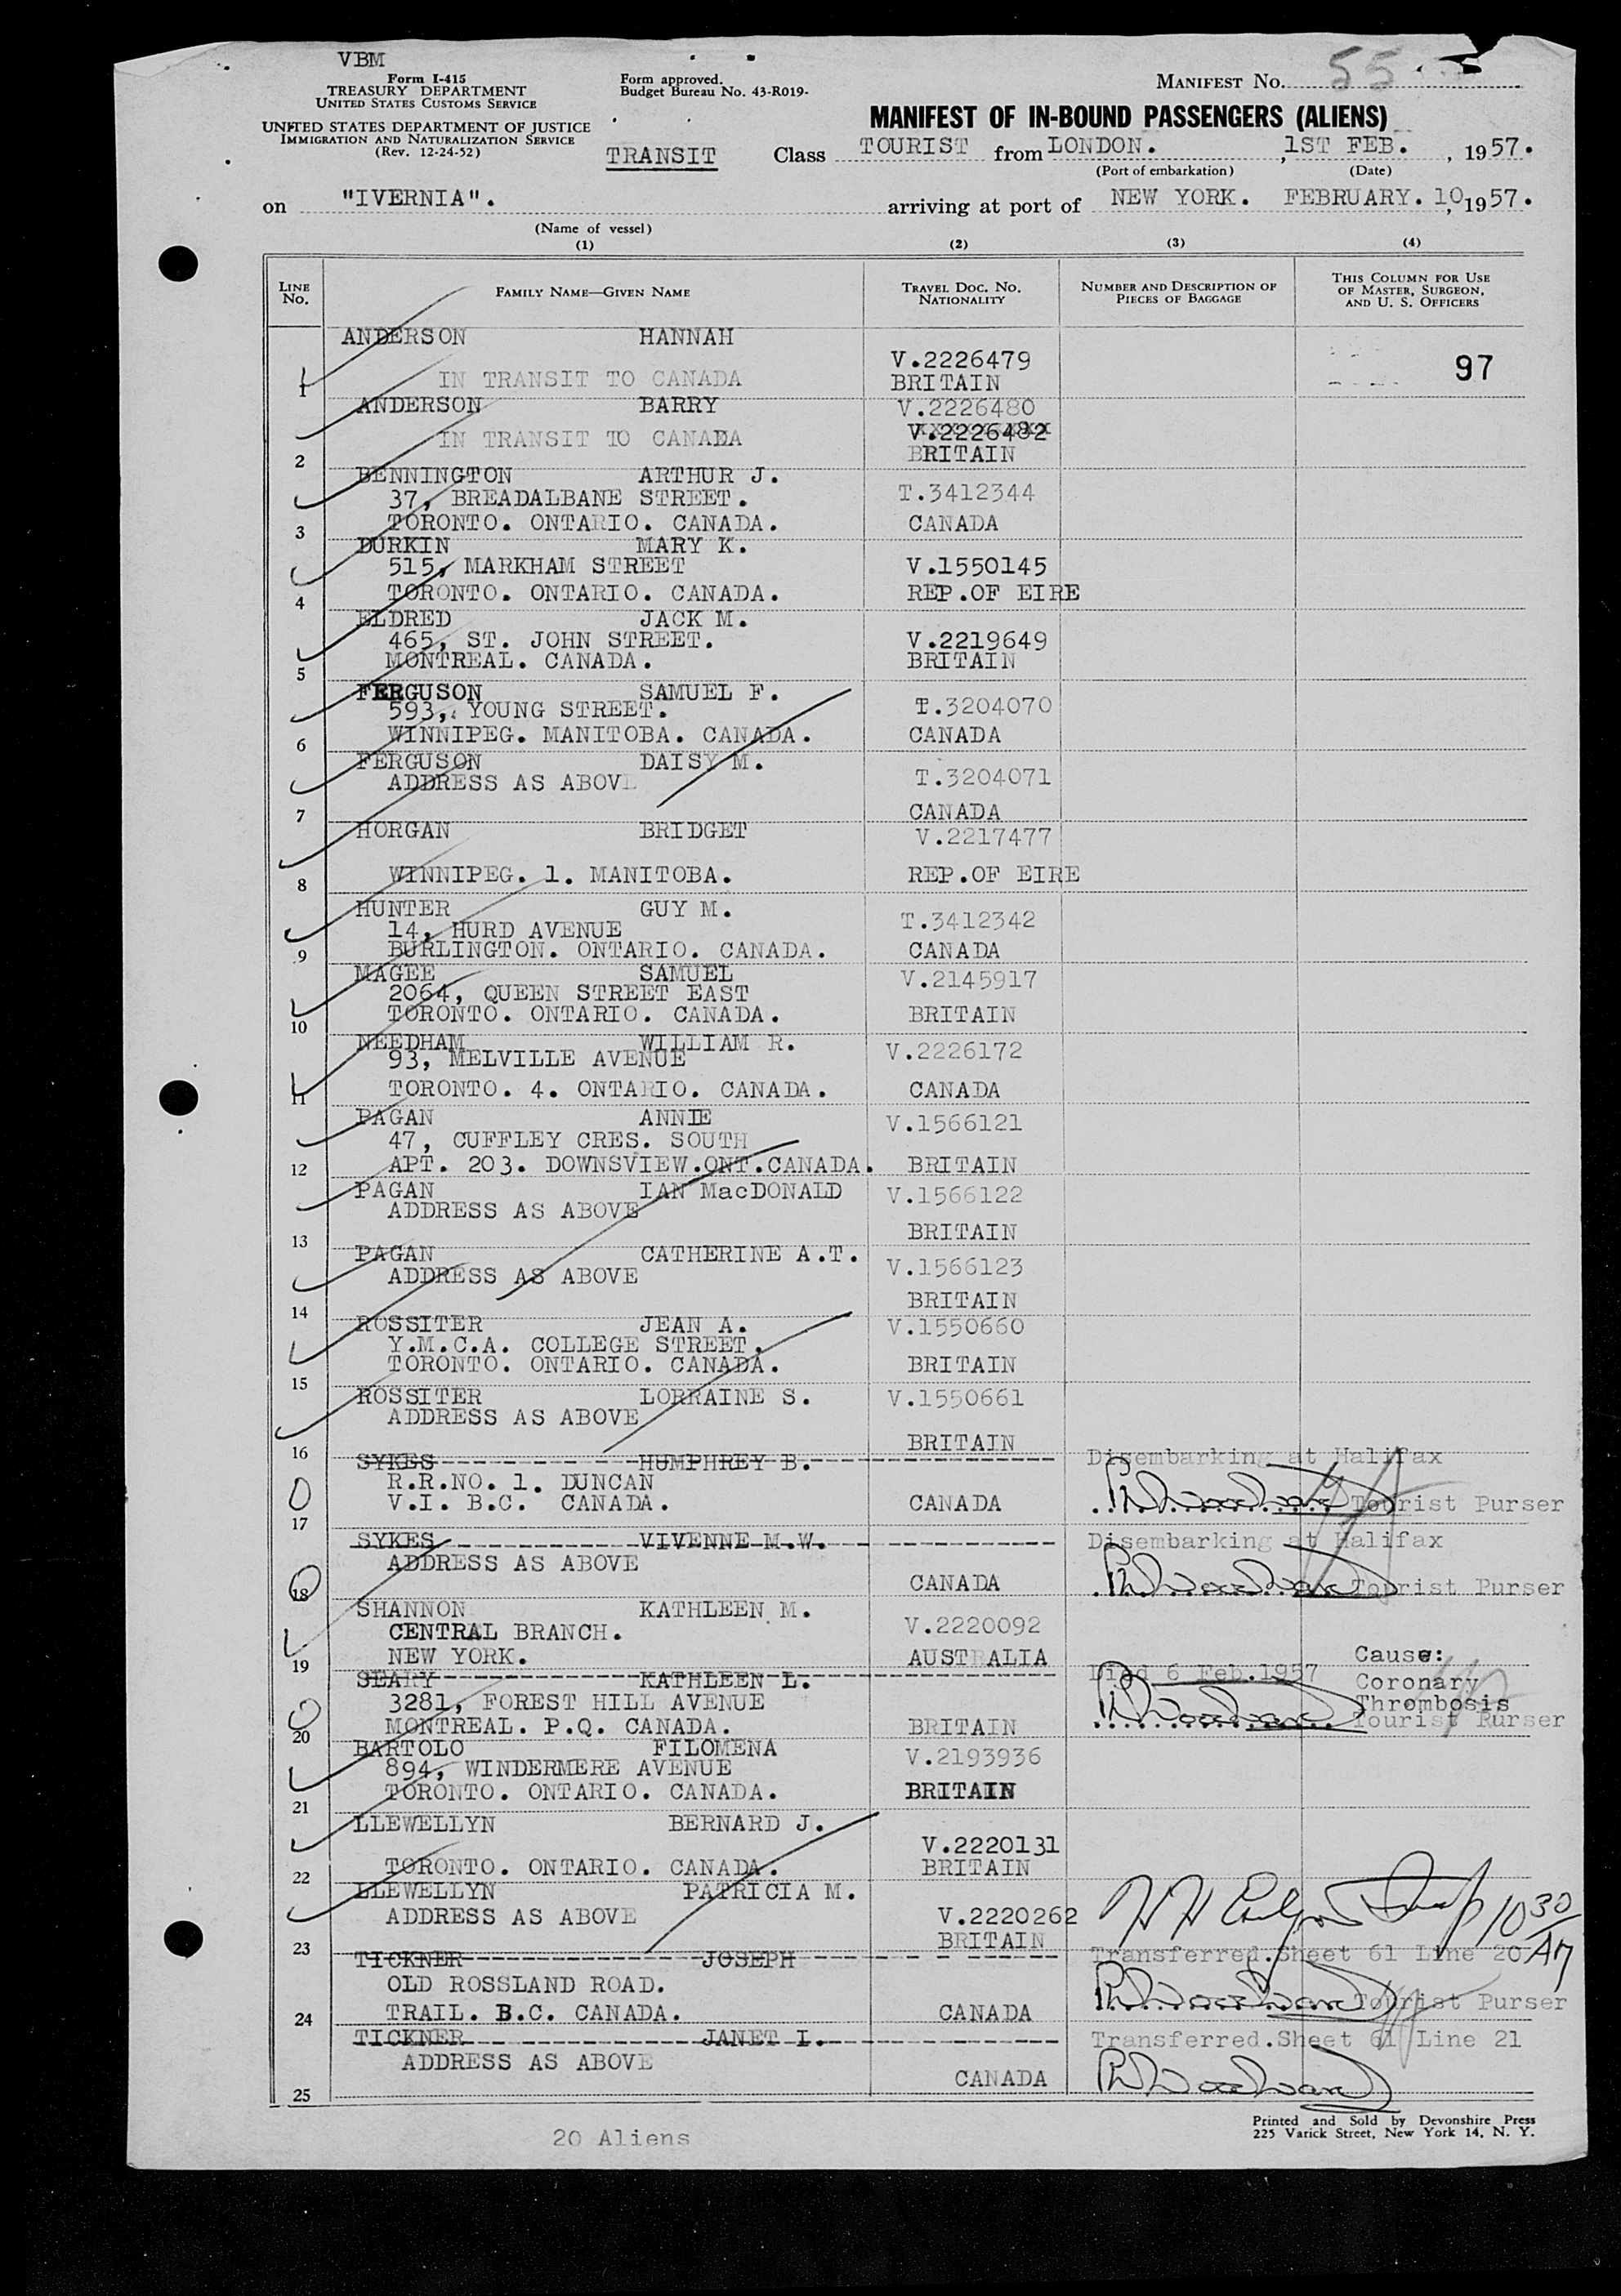 VBM
Form I-415
TREASURY DEPARTMENT
UNITED STATES CUSTOMS SERVICE
UNITED STATES DEPARTMENT OF JUSTICE
IMMIGRATION AND NATURALIZATION SERVICE
(Rev. 12-24-52)
Form approved.
Budget Bureau No. 43-R019-
MANIFEST NO. 55
MANIFEST OF IN-BOUND PASSENGERS (ALIENS)
TRANSIT Class TOURIST from LONDON. , 1ST FEB. , 1957.
(Port of embarkation) (Date)
on "IVERNIA". arriving at port of NEW YORK. FEBRUARY. 10, 1957.
(Name of vessel)
(1) (2) (3) (4)
LINE NO. FAMILY NAME—GIVEN NAME TRAVEL DOC. NO. NATIONALITY NUMBER AND DESCRIPTION OF PIECES OF BAGGAGE THIS COLUMN FOR USE OF MASTER, SURGEON, AND U. S. OFFICERS
ANDERSON HANNAH
V.2226479 97
1 IN TRANSIT TO CANADA BRITAIN
ANDERSON BARRY V.2226480
IN TRANSIT TO CANADA V.2226482
2 BRITAIN
BENNINGTON ARTHUR J.
37, BREADALBANE STREET. T.3412344
3 TORONTO. ONTARIO. CANADA. CANADA
DURKIN MARY K.
515, MARKHAM STREET V.1550145
4 TORONTO. ONTARIO. CANADA. REP.OF EIRE
ELDRED JACK M.
465, ST. JOHN STREET. V.2219649
5 MONTREAL. CANADA. BRITAIN
FERGUSON SAMUEL F.
593, YOUNG STREET. T.3204070
6 WINNIPEG. MANITOBA. CANADA. CANADA
FERGUSON DAISY M.
ADDRESS AS ABOVE T.3204071
7 CANADA
HORGAN BRIDGET V.2217477
8 WINNIPEG. 1. MANITOBA. REP.OF EIRE
HUNTER GUY M.
14, HURD AVENUE T.3412342
9 BURLINGTON. ONTARIO. CANADA. CANADA
MAGEE SAMUEL V.2145917
2064, QUEEN STREET EAST
10 TORONTO. ONTARIO. CANADA. BRITAIN
NEEDHAM WILLIAM R.
93, MELVILLE AVENUE V.2226172
11 TORONTO. 4. ONTARIO. CANADA. CANADA
PAGAN ANNIE V.1566121
47, CUFFLEY CRES. SOUTH
12 APT. 203. DOWNSVIEW.ONT.CANADA. BRITAIN
PAGAN IAN MacDONALD V.1566122
ADDRESS AS ABOVE
13 BRITAIN
PAGAN CATHERINE A.T.
ADDRESS AS ABOVE V.1566123
14 BRITAIN
ROSSITER JEAN A. V.1550660
Y.M.C.A. COLLEGE STREET.
15 TORONTO. ONTARIO. CANADA. BRITAIN
ROSSITER LORRAINE S. V.1550661
ADDRESS AS ABOVE
16 BRITAIN
SYKES HUMPHREY B. Disembarking at Halifax
R.R.NO. 1. DUNCAN
17 V.I. B.C. CANADA. CANADA Tourist Purser
SYKES VIVENNE M.W. Disembarking at Halifax
ADDRESS AS ABOVE
18 CANADA Tourist Purser
SHANNON KATHLEEN M.
CENTRAL BRANCH. V.2220092
19 NEW YORK. AUSTRALIA Cause:
SEARY KATHLEEN L. Died 6 Feb.1957 Coronary
3281, FOREST HILL AVENUE Thrombosis
20 MONTREAL. P.Q. CANADA. BRITAIN Tourist Purser
BARTOLO FILOMENA
894, WINDERMERE AVENUE V.2193936
21 TORONTO. ONTARIO. CANADA. BRITAIN
LLEWELLYN BERNARD J.
V.2220131
22 TORONTO. ONTARIO. CANADA. BRITAIN
LLEWELLYN PATRICIA M.
ADDRESS AS ABOVE V.2220262 10 30 AM
23 BRITAIN
TICKNER JOSEPH Transferred.Sheet 61 Line 20
OLD ROSSLAND ROAD.
24 TRAIL. B.C. CANADA. CANADA Tourist Purser
TICKNER JANET I. Transferred.Sheet 61 Line 21
ADDRESS AS ABOVE
25 CANADA
20 Aliens
Printed and Sold by Devonshire Press
225 Varick Street, New York 14, N. Y.